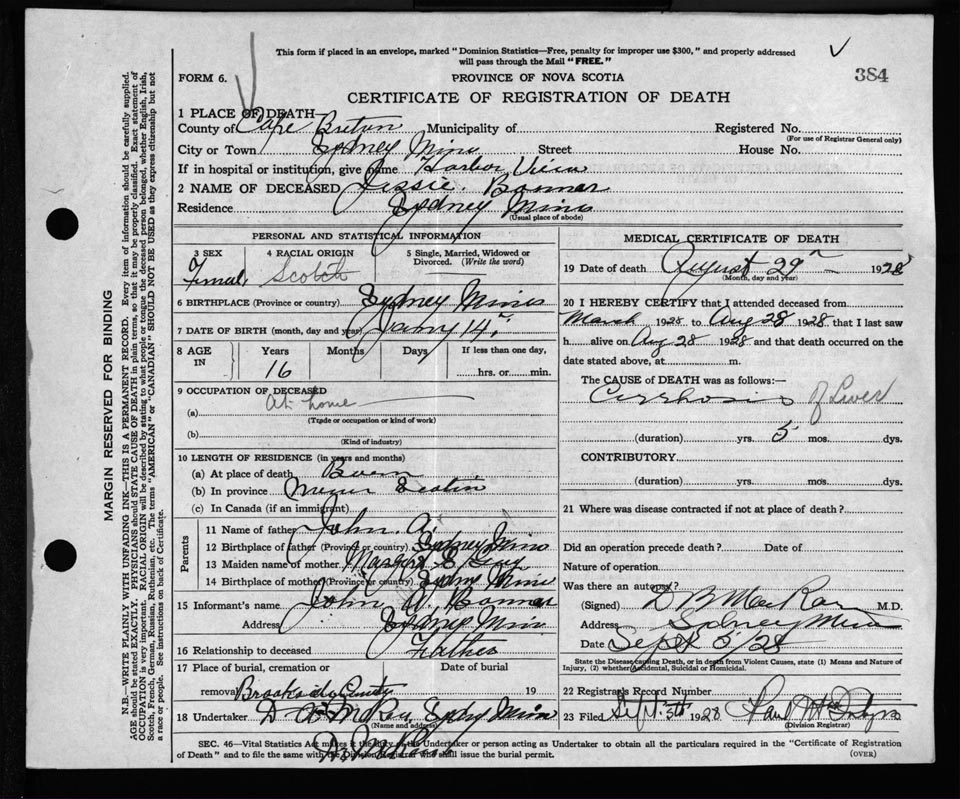 This form if placed in an envelope, marked "Dominion Statistics—Free, penalty for improper use $300," and properly addressed
will pass through the Mail "FREE."
FORM 6.
PROVINCE OF NOVA SCOTIA
384
CERTIFICATE OF REGISTRATION OF DEATH
MARGIN RESERVED FOR BINDING
N.B.—WRITE PLAINLY WITH UNFADING INK—THIS IS A PERMANENT RECORD. Every item of information should be carefully supplied.
AGE should be stated EXACTLY. PHYSICIANS should STATE CAUSE OF DEATH in plain terms, so that it may be properly classified. Exact statement of
OCCUPATION is very important. RACIAL ORIGIN will be described by stating to what people or tongue the deceased person belonged, whether English, Irish,
Scotch, French, German, Russian, Ruthenian, etc. The terms "AMERICAN" or "CANADIAN" SHOULD NOT BE USED as they express citizenship but not
a race or people. See instructions on back of Certificate.
1 PLACE OF DEATH—
County of Cape Breton Municipality of Registered No.
(For use of Registrar General only)
City or Town Sydney Mines Street House No.
If in hospital or institution, give name Harbor View
2 NAME OF DECEASED Jessie
Residence Sydney Mines
(Usual place of abode)
PERSONAL AND STATISTICAL INFORMATION
3 SEX Female
4 RACIAL ORIGIN Scotch
5 Single, Married, Widowed or Divorced. (Write the word)
6 BIRTHPLACE (Province or country) Sydney Mines
7 DATE OF BIRTH (month, day and year) 14
8 AGE IN Years 16 Months Days If less than one day,
hrs. or min.
9 OCCUPATION OF DECEASED
(a) At home
(Trade or occupation or kind of work)
(b)
(Kind of industry)
10 LENGTH OF RESIDENCE (in years and months)
(a) At place of death Born
(b) In province Nova Scotia
(c) In Canada (if an immigrant)
Parents
11 Name of father John A.
12 Birthplace of father (Province or country) Sydney Mines
13 Maiden name of mother
14 Birthplace of mother (Province or country) Sydney Mines
15 Informant's name John A.
Address Sydney Mines
16 Relationship to deceased Father
17 Place of burial, cremation or Date of burial
removal Brookside 19
18 Undertaker Sydney Mines
(Name and address)
MEDICAL CERTIFICATE OF DEATH
19 Date of death August 29 1928
(Month, day and year)
20 I HEREBY CERTIFY that I attended deceased from
March 1928 to Aug 28 1928 that I last saw
h alive on Aug 28 1928 and that death occurred on the
date stated above, at m.
The CAUSE OF DEATH was as follows:—
Cirrhosis of Liver
(duration) yrs. 5 mos. dys.
CONTRIBUTORY
(duration) yrs. mos. dys.
21 Where was disease contracted if not at place of death?
Did an operation precede death? Date of
Nature of operation
Was there an autopsy?
(Signed) M.D.
Address Sydney Mines
Date Sept 5/28
State the Disease causing Death, or in death from Violent Causes, state (1) Means and Nature of
Injury, (2) whether Accidental, Suicidal or Homicidal.
22 Registrar's Record Number
23 Filed Sept 5th 1928
(Division Registrar)
SEC. 46—Vital Statistics Act makes it the duty of the Undertaker or person acting as Undertaker to obtain all the particulars required in the "Certificate of Registration
of Death" and to file same with the Division Registrar who shall issue the burial permit. (OVER)